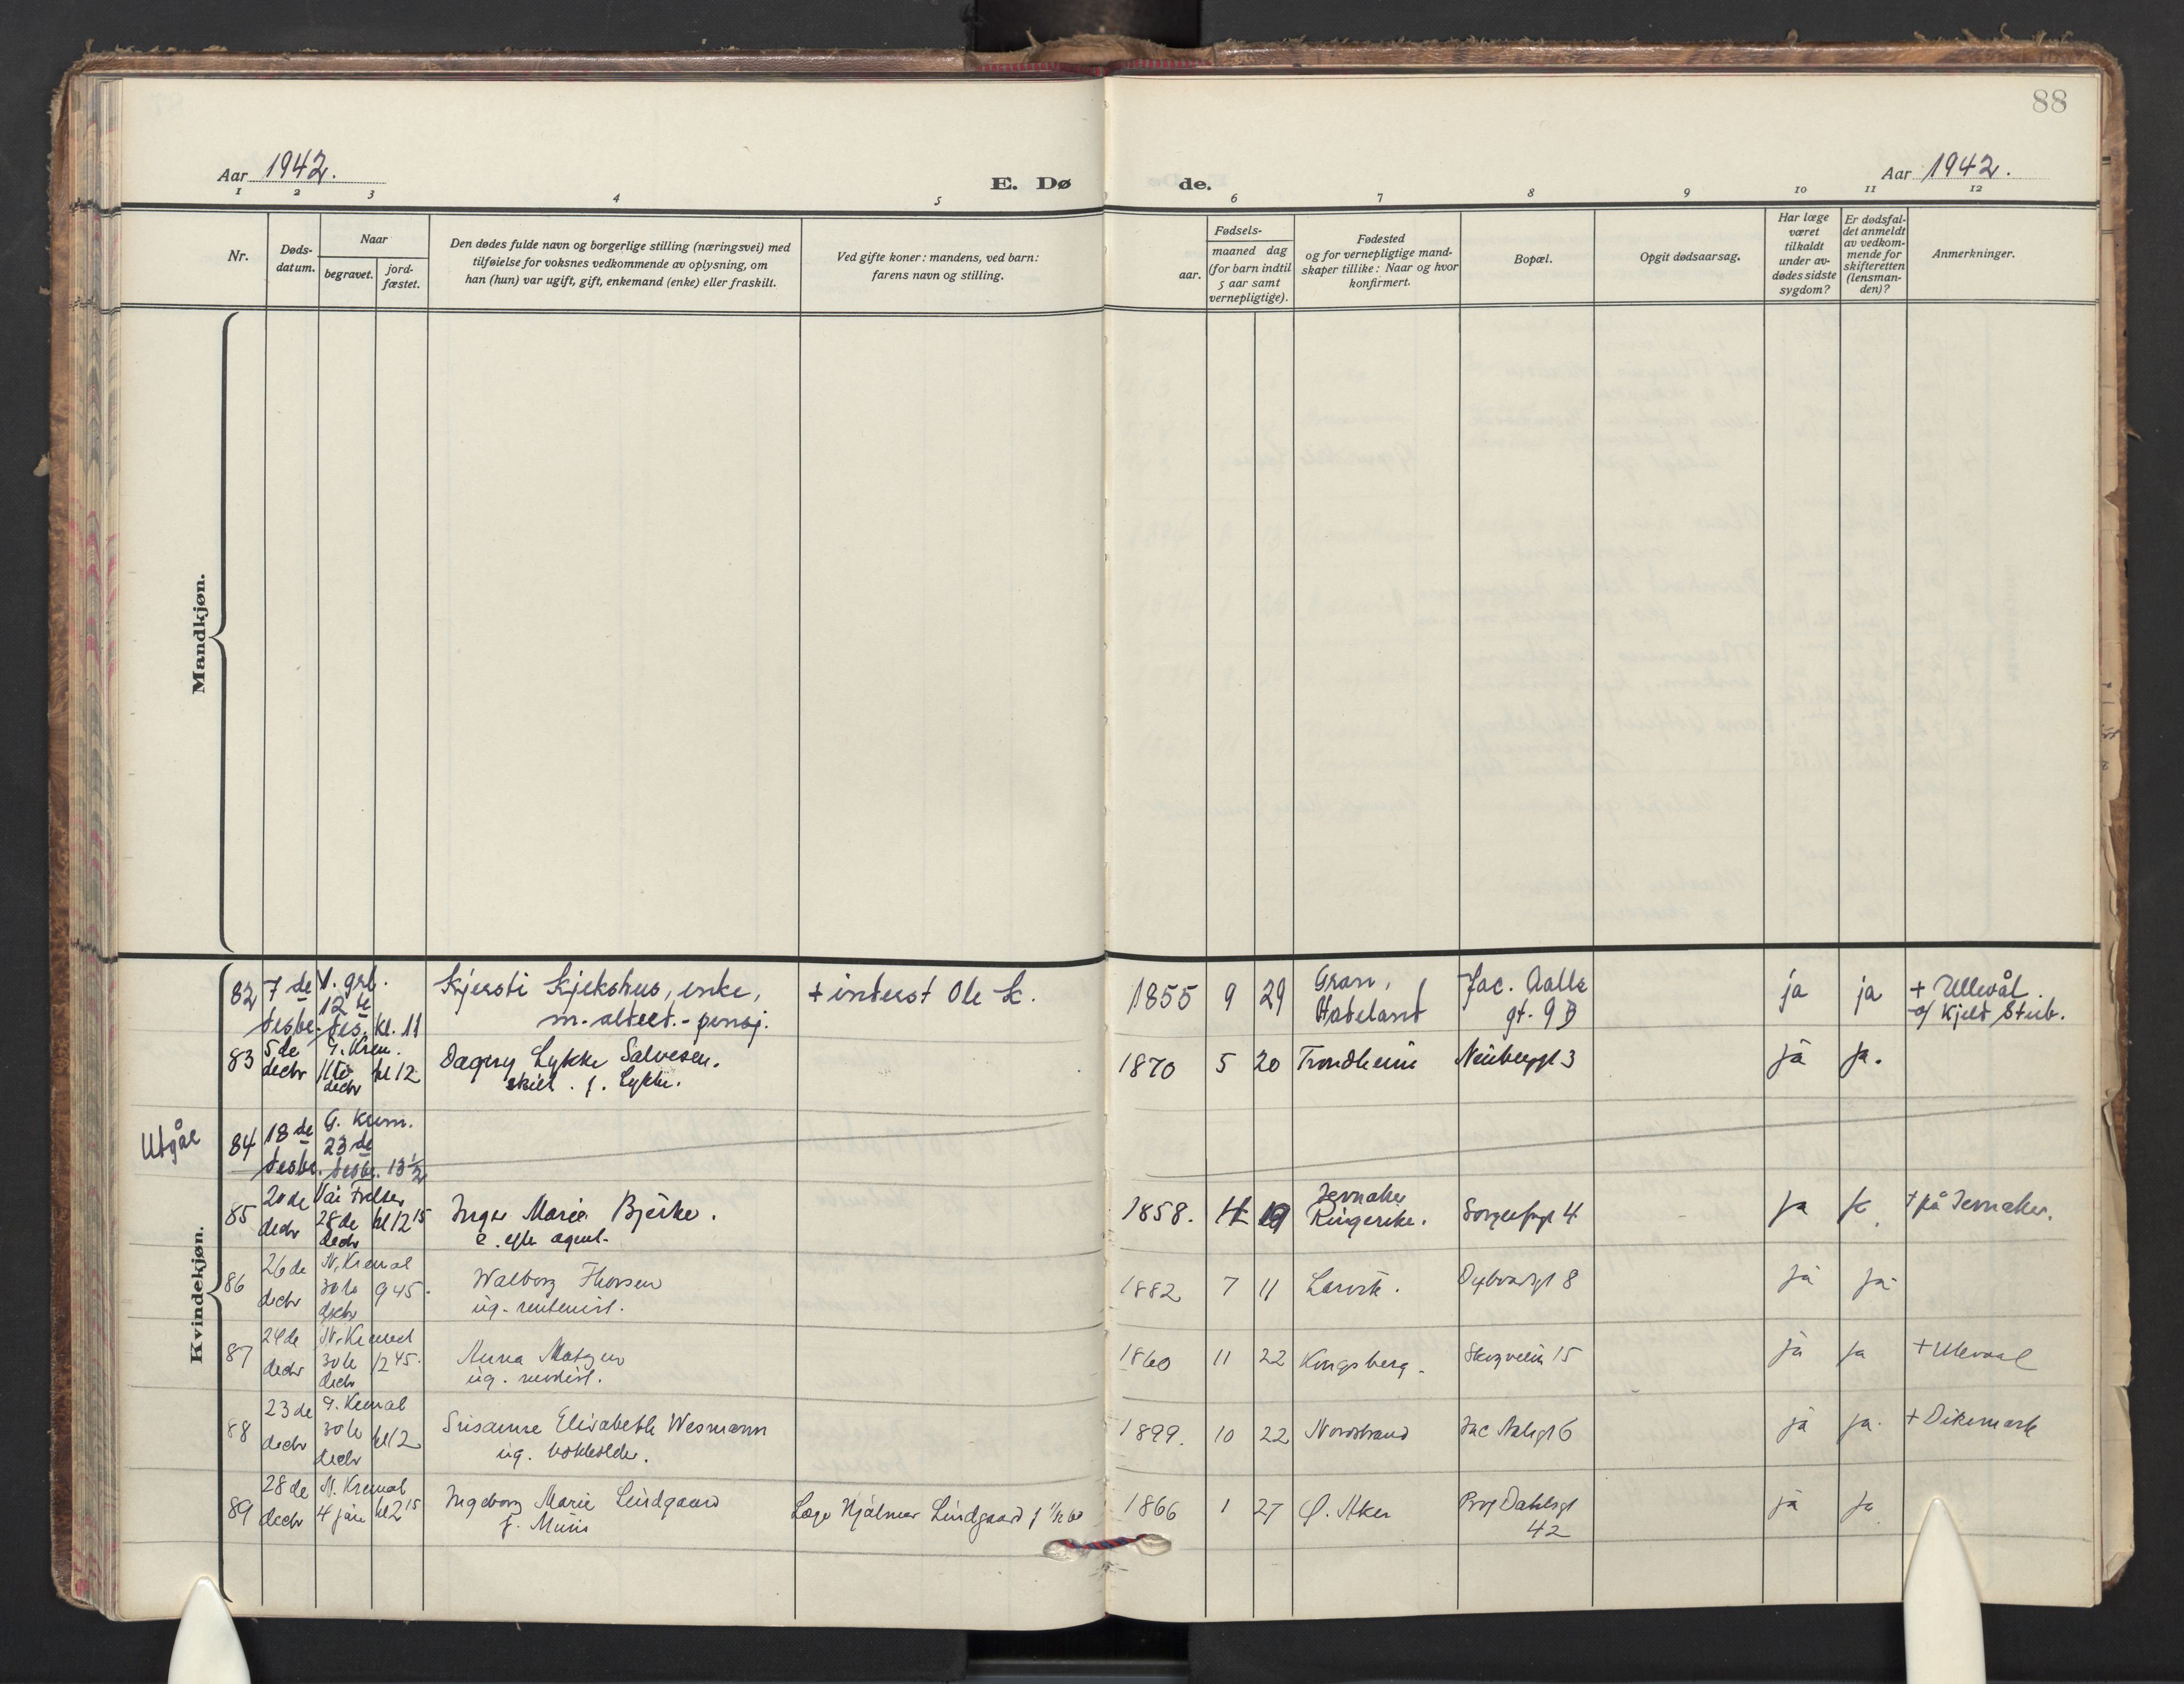 88
Aar 1942.
E. Dø
de.
Aar 1942.
1 2 3 4 5 6 7 8 9 10 11 12
Nr.
Døds-
datum.
Naar
begravet.
jord-
fæstet.
Den dødes fulde navn og borgerlige stilling (næringsvei) med
tilføielse for voksnes vedkommende av oplysning, om
han (hun) var ugift, gift, enkemand (enke) eller fraskilt.
Ved gifte koner: mandens, ved barn:
farens navn og stilling.
Fødsels-
aar.
maaned dag
(for barn indtil
5 aar samt
vernepligtige).
Fødested
og for vernepligtige mand-
skaper tillike: Naar og hvor
konfirmert.
Bopæl.
Opgit dødsaarsag.
Har læge
været
tilkaldt
under av-
dødes sidste
sygdom?
Er dødsfal-
det anmeldt
av vedkom-
mende for
skifteretten
(lensman-
den)?
Anmerkninger.
Mandkjøn.
Kvindekjøn.
82 7 de V. grb.
12 te
desbr. des. kl. 11
Kjersti Kjekshus, enke,
m. alderd.-pensj.
+ inderst Ole K.
1855 9 29
Gran,
Hadeland
Jac. Aalls
gt. 9 B
ja ja
+ Ullevål.
o/ Kjeld Stub.
83 5 de G. Krem.
decbr 11te decbr kl 12
Dagny Lykke Salvesen.
skilt. f. Lykke.
1870 5 20 Trondheim Neubergt 3 ja ja.
Utgår
84 18 de G. Krem.
23 de
desbr. desbr. 13 1/2
85 20 de Vår Frelser
decbr 28 de decbr kl 12 15
Inger Marie Bjerke.
e. efter agent.
1858. 19
Jevnaker
Ringerike.
4 ja ja
+ på Jevnaker.
86 26 de N. Kremat
decbr 30 te decbr 9 45.
Walborg Thorsen
ug. rentenist.
1882 7 11 Larvik. Dybwadsgt 8 ja ja
87 24 de N. Kremat
decbr 30 te decbr 12 45.
Anna
ug. modist.
1860 11 22 Kongsberg. 15 ja ja + Ulevaal
88 23 de G. Kremat
decbr 30 te decbr kl 12
Susanne Elisabeth Wesmann
ug. bokholder.
1899. 10 22 Nordstrand Jac Aalsgt 6 ja ja. + Dikemark
89 28 de N. Kremat
decbr 4 jan kl 2 15
Ingeborg Marie Lindgaard
f.
Læge Hjalmar Lindgaard f
1866 1 27 Ø. Aker
Prof Dahlsgt
42
ja ja